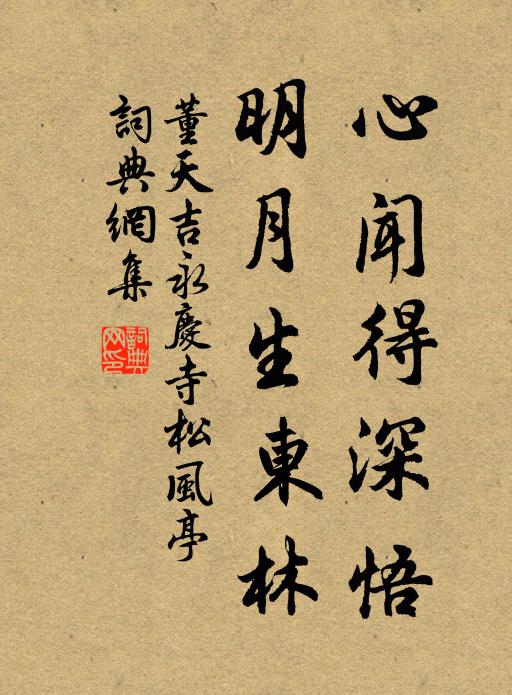 心闻得深悟
明月生東林
董天吉永慶寺松風亭
詞典網集
詞典网印